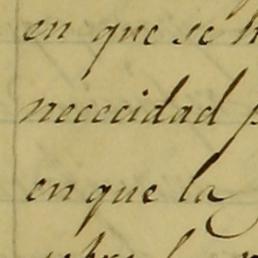 en que se
nececidad
en que la